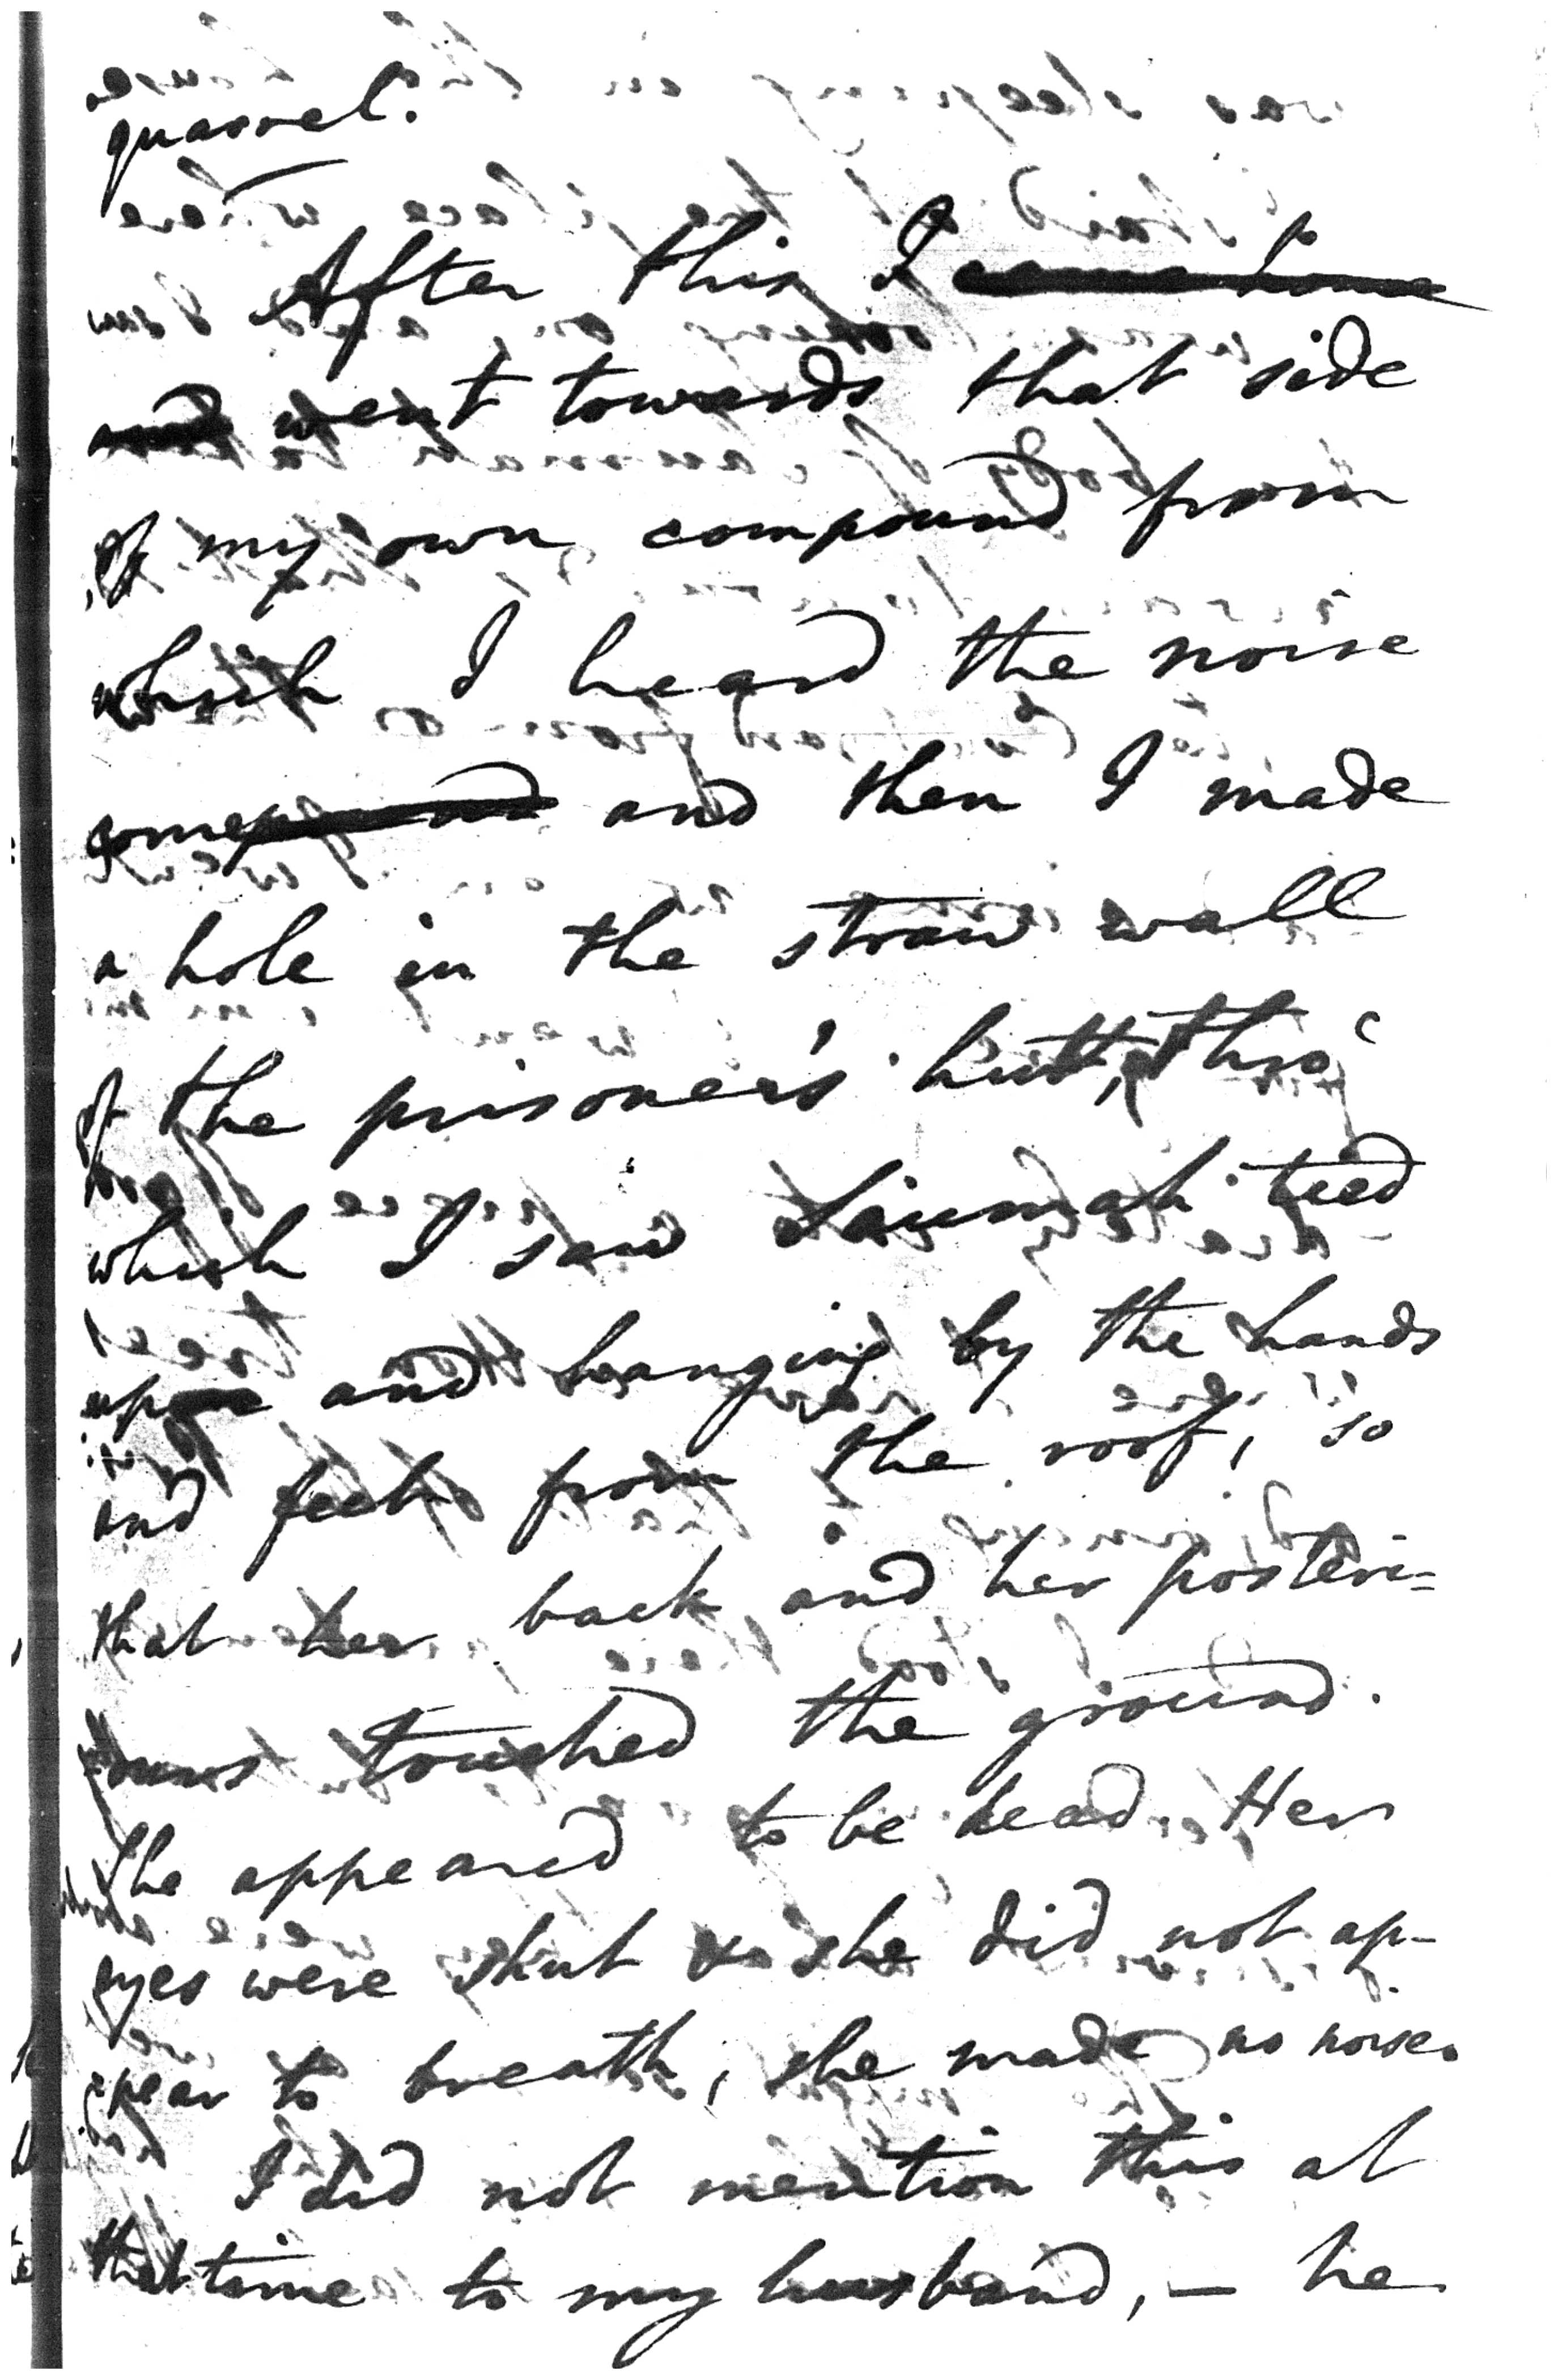 quarrel.
After this I came home
and went towards that side
of my own compound from
which I heard the noise
compound and then I made
a hole in the straw wall
of the prisoner's hutt, thro'
which I saw Saumah tied
up and hanging by the hands
and feet from the roof, so
that her back and her posteri=
=ours touched the ground.
She appeared to be dead. Her
eyes were shut & she did not ap-
-pear to breath, she made no noise.
I did not mention this at
that time to my husband, — he